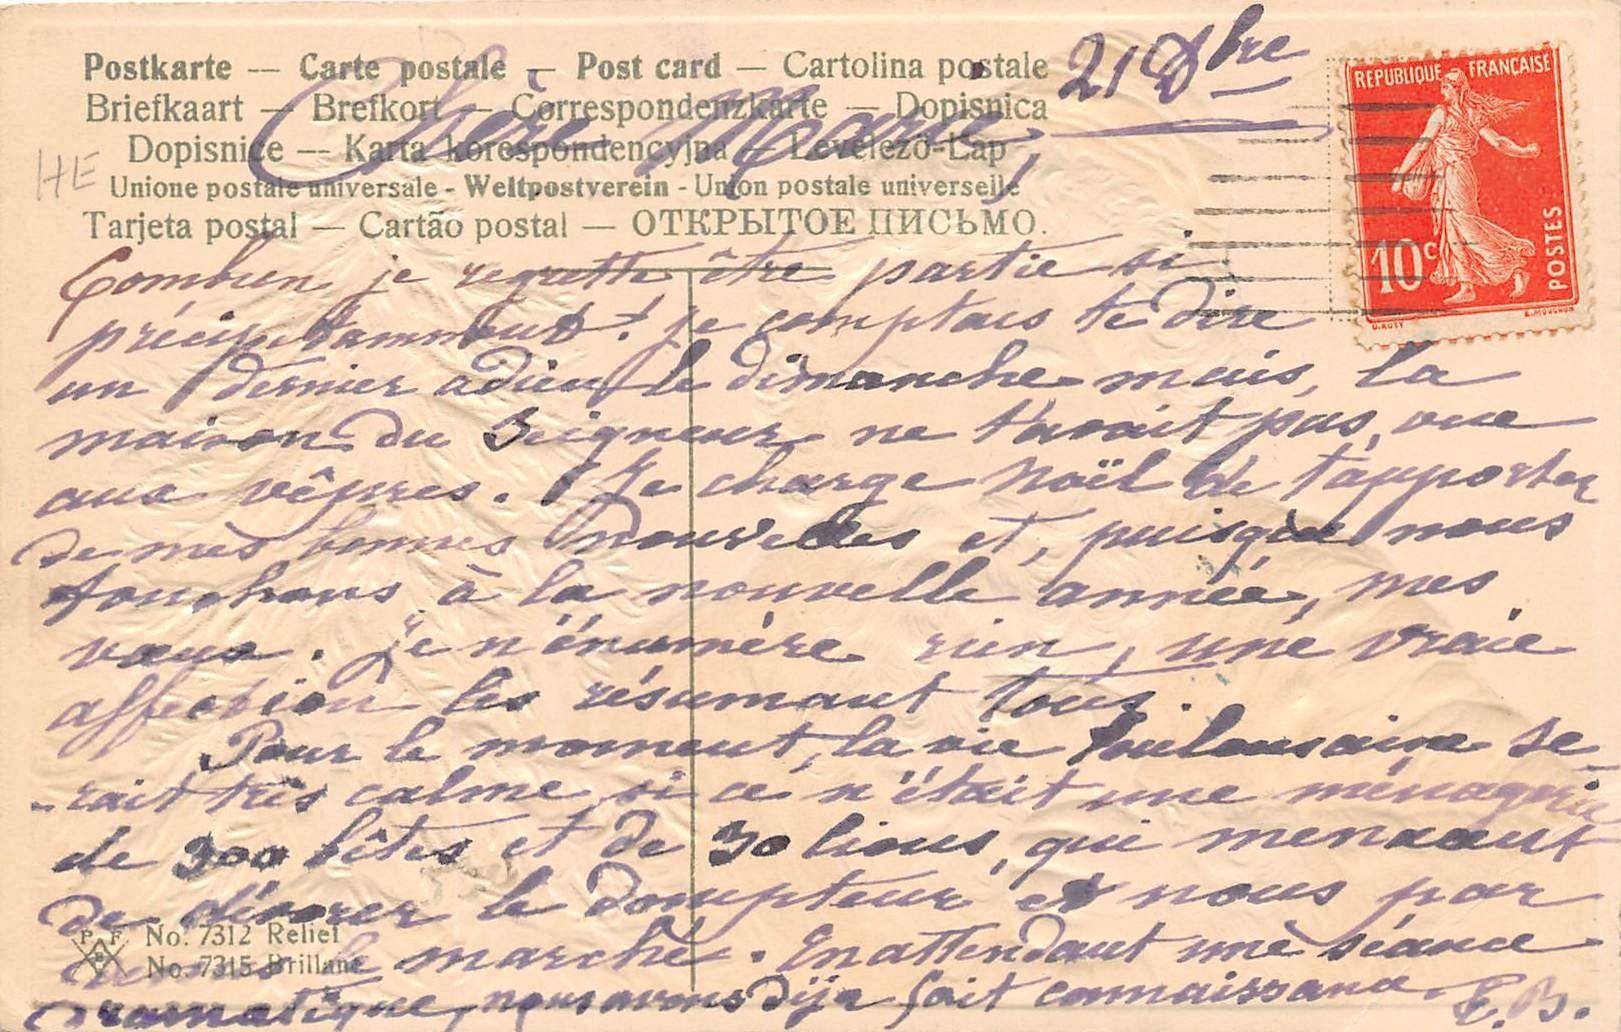 Postkarte — Carte postale — Post card — Cartolina postale
Briefkaart — Brefkort — Correspondenzkarte — Dopisnica
Dopisnice — Karta korespondencyjna — Levelező-Lap
Unione postale universale - Weltpostverein - Union postale universelle
Tarjeta postal — Cartão postal — ОТКРЫТОЕ ПИСЬМО.
HE
21 Xbre
REPUBLIQUE FRANÇAISE
10c
POSTES
O.ROTY
E.MOUCHON
Chère Marie,
Combien je regrette être partie si
précipitamment! je comptais te dire
un dernier adieu le dimanche mais, la
maison du Seigneur ne t'avait pas vue
aux vêpres. Je charge Noël de t'apporter
de mes bonnes nouvelles et, puisque nous
touchons à la nouvelle année, mes
vœux. Je n'énumère rien, une vraie
affection les résumant tous.
Pour le moment, la vie toulousaine se-
-rait très calme si ce n'était une ménagerie
de 300 bêtes et de 30 lions, qui menacent
de dévorer le dompteur et nous par
dessus le marché. En attendant une séance
dramatique, nous avons déjà fait connaissance.
E. B.
P F B
No. 7312 Relief
No. 7315 Brillant